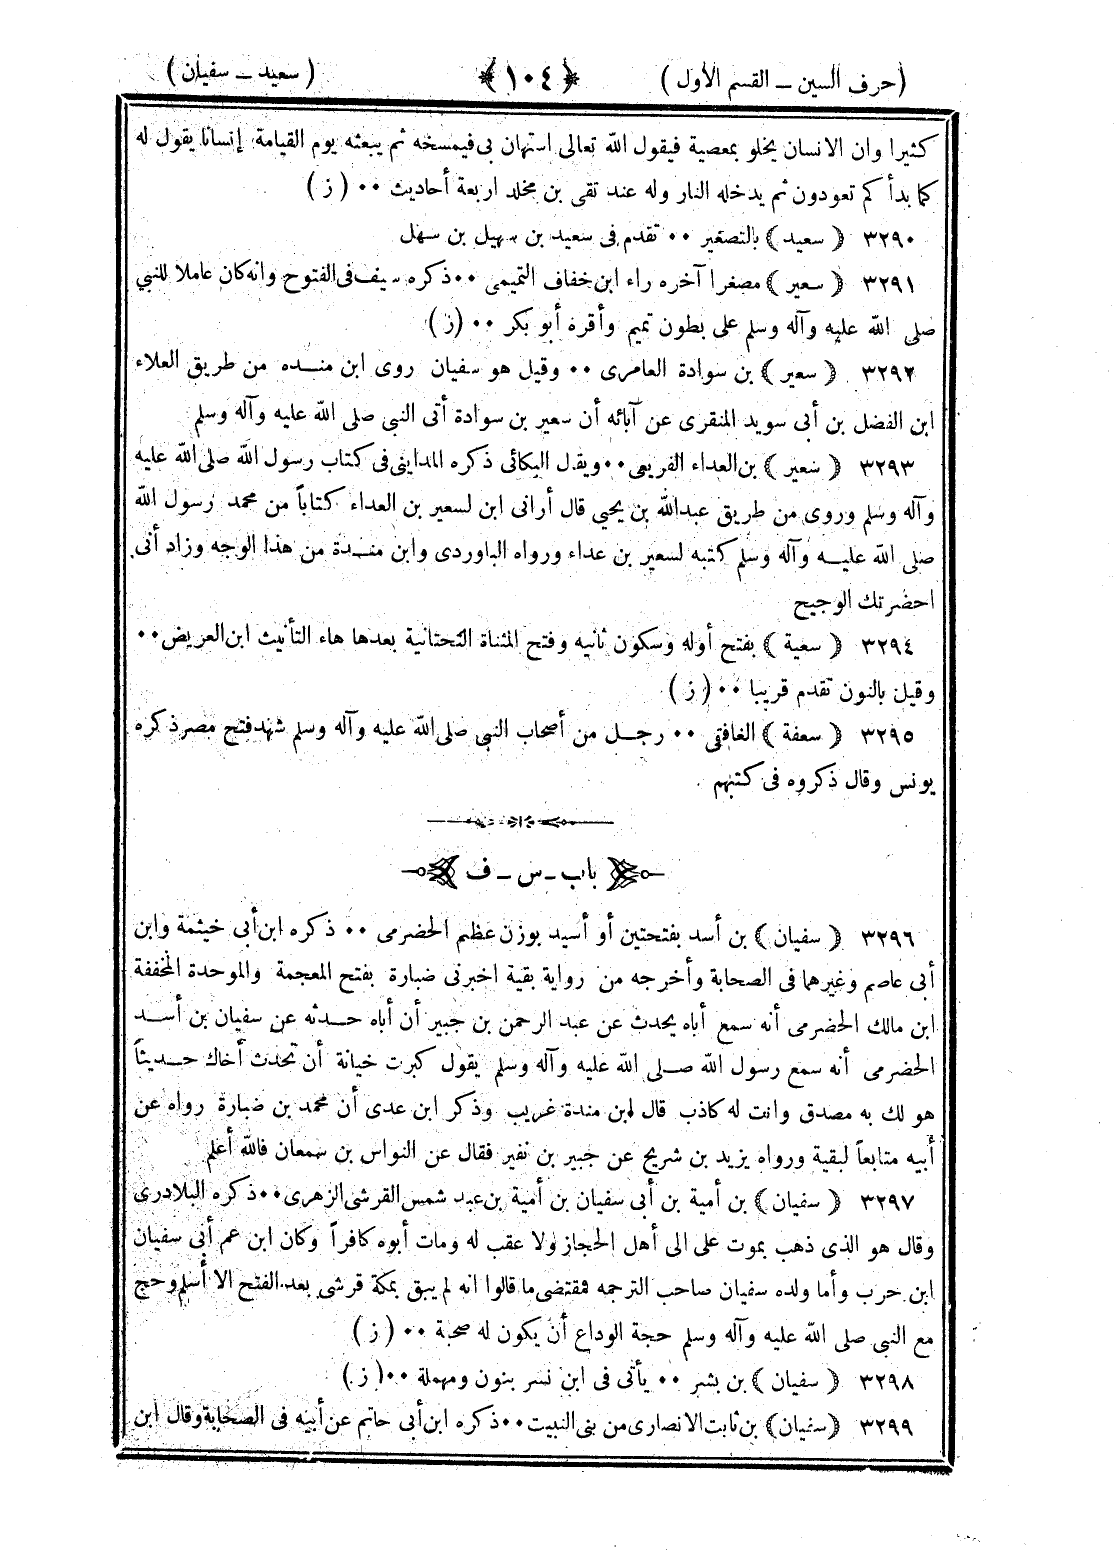 (حرف السين ــ القسم الأول) ﴿١٠٤﴾ (سعيد ــ سفيان)
كثيرا وان الانسان يخلو بمعصية فيقول الله تعالى استهان بى فيمسخه ثم يبعثه يوم القيامة إنسانا يقول له
كما بدأ كم تعودون ثم يدخله النار وله عند تقى بن مخلد اربعة أحاديث ٠٠ (ز)
٣٢٩٠ ﴿سعيد﴾ بالتصغير ٠٠ تقدم فى سعيد بن سهيل بن سهل
٣٢٩١ ﴿سعير﴾ مصغرا آخره راء ابن خفاف التميمى ٠٠ ذكره سيف فى الفتوح وانه كان عاملا للنبي
صلى الله عليه وآله وسلم على بطون تميم وأقره أبو بكر ٠٠ (ز)
٣٢٩٢ ﴿سعير﴾ بن سوادة العامرى ٠٠ وقيل هو سفيان روى ابن منده من طريق العلاء
ابن الفضل بن أبى سويد المنقرى عن آبائه أن سعير بن سوادة أتى النبي صلى الله عليه وآله وسلم
٣٢٩٣ ﴿سعير﴾ بن العداء الفريعى ٠٠ ويقل البكائى ذكره المداينى فى كتاب رسول الله صلى الله عليه
وآله وسلم وروى من طريق عبدالله بن يحيى قال أرانى ابن لسعير بن العداء كتاباً من محمد رسول الله
صلى الله عليه وآله وسلم كتبه لسعير بن عداء ورواه الباوردى وابن مندة من هذا الوجه وزاد أنى
احضرتك الوجيح
٣٢٩٤ ﴿سعية﴾ بفتح أوله وسكون ثانيه وفتح المثناة التحتانية بعدها هاء التأنيث ابن العريض ٠٠
وقيل بالنون تقدم قريبا ٠٠ (ز)
٣٢٩٥ ﴿سعفة﴾ الغافتى ٠٠ رجل من أصحاب النبي صلى الله عليه وآله وسلم شهد فتح مصر ذكره
يونس وقال ذكروه فى كتبهم
باب ــ س ــ ف
٣٢٩٦ ﴿سفيان﴾ بن أسد بفتحتين أو أسيد بوزن عظيم الحضرمى ٠٠ ذكره ابن أبى خيثمة وابن
أبى عاصم وغيرهما فى الصحابة وأخرجه من رواية بقية اخبرنى ضبارة بفتح المعجمة والموحدة المخففة
ابن مالك الحضرمى أنه سمع أباه يحدث عن عبد الرحمن بن جبير أن أباه حدثه عن سفيان بن أسد
الحضرمى أنه سمع رسول الله صلى الله عليه وآله وسلم يقول كبرت خيانة أن تحدث أخاك حديثاً
هو لك به مصدق وانت له كاذب قال ابن مندة غريب وذكر ابن عدى أن محمد بن ضبارة رواه عن
أبيه متابعاً لبقية ورواه يزيد بن شريح عن جبير بن نفير فقال عن النواس بن سمعان فالله أعلم
٣٢٩٧ ﴿سفيان﴾ بن أمية بن أبى سفيان بن أمية بن عبد شمس القرشى الزهرى ٠٠ ذكره البلاذرى
وقال هو الذى ذهب بموت على الى أهل الحجاز ولا عقب له ومات أبوه كافراً وكان ابن عم أبى سفيان
ابن حرب وأما ولده سفيان صاحب الترجمه فمقتضى ما قالوا انه لم يبق بمكة قرشى بعد الفتح الا أسلم وحج
مع النبي صلى الله عليه وآله وسلم حجة الوداع أن يكون له صحبة ٠٠ (ز)
٣٢٩٨ ﴿سفيان﴾ بن بشر ٠٠ يأتى فى ابن نسر بنون ومهملة ٠٠ (ز)
٣٢٩٩ ﴿سفيان﴾ بن ثابت الانصارى من بنى النبيت ٠٠ ذكره ابن أبى حاتم عن أبيه فى الصحابة وقال ابن